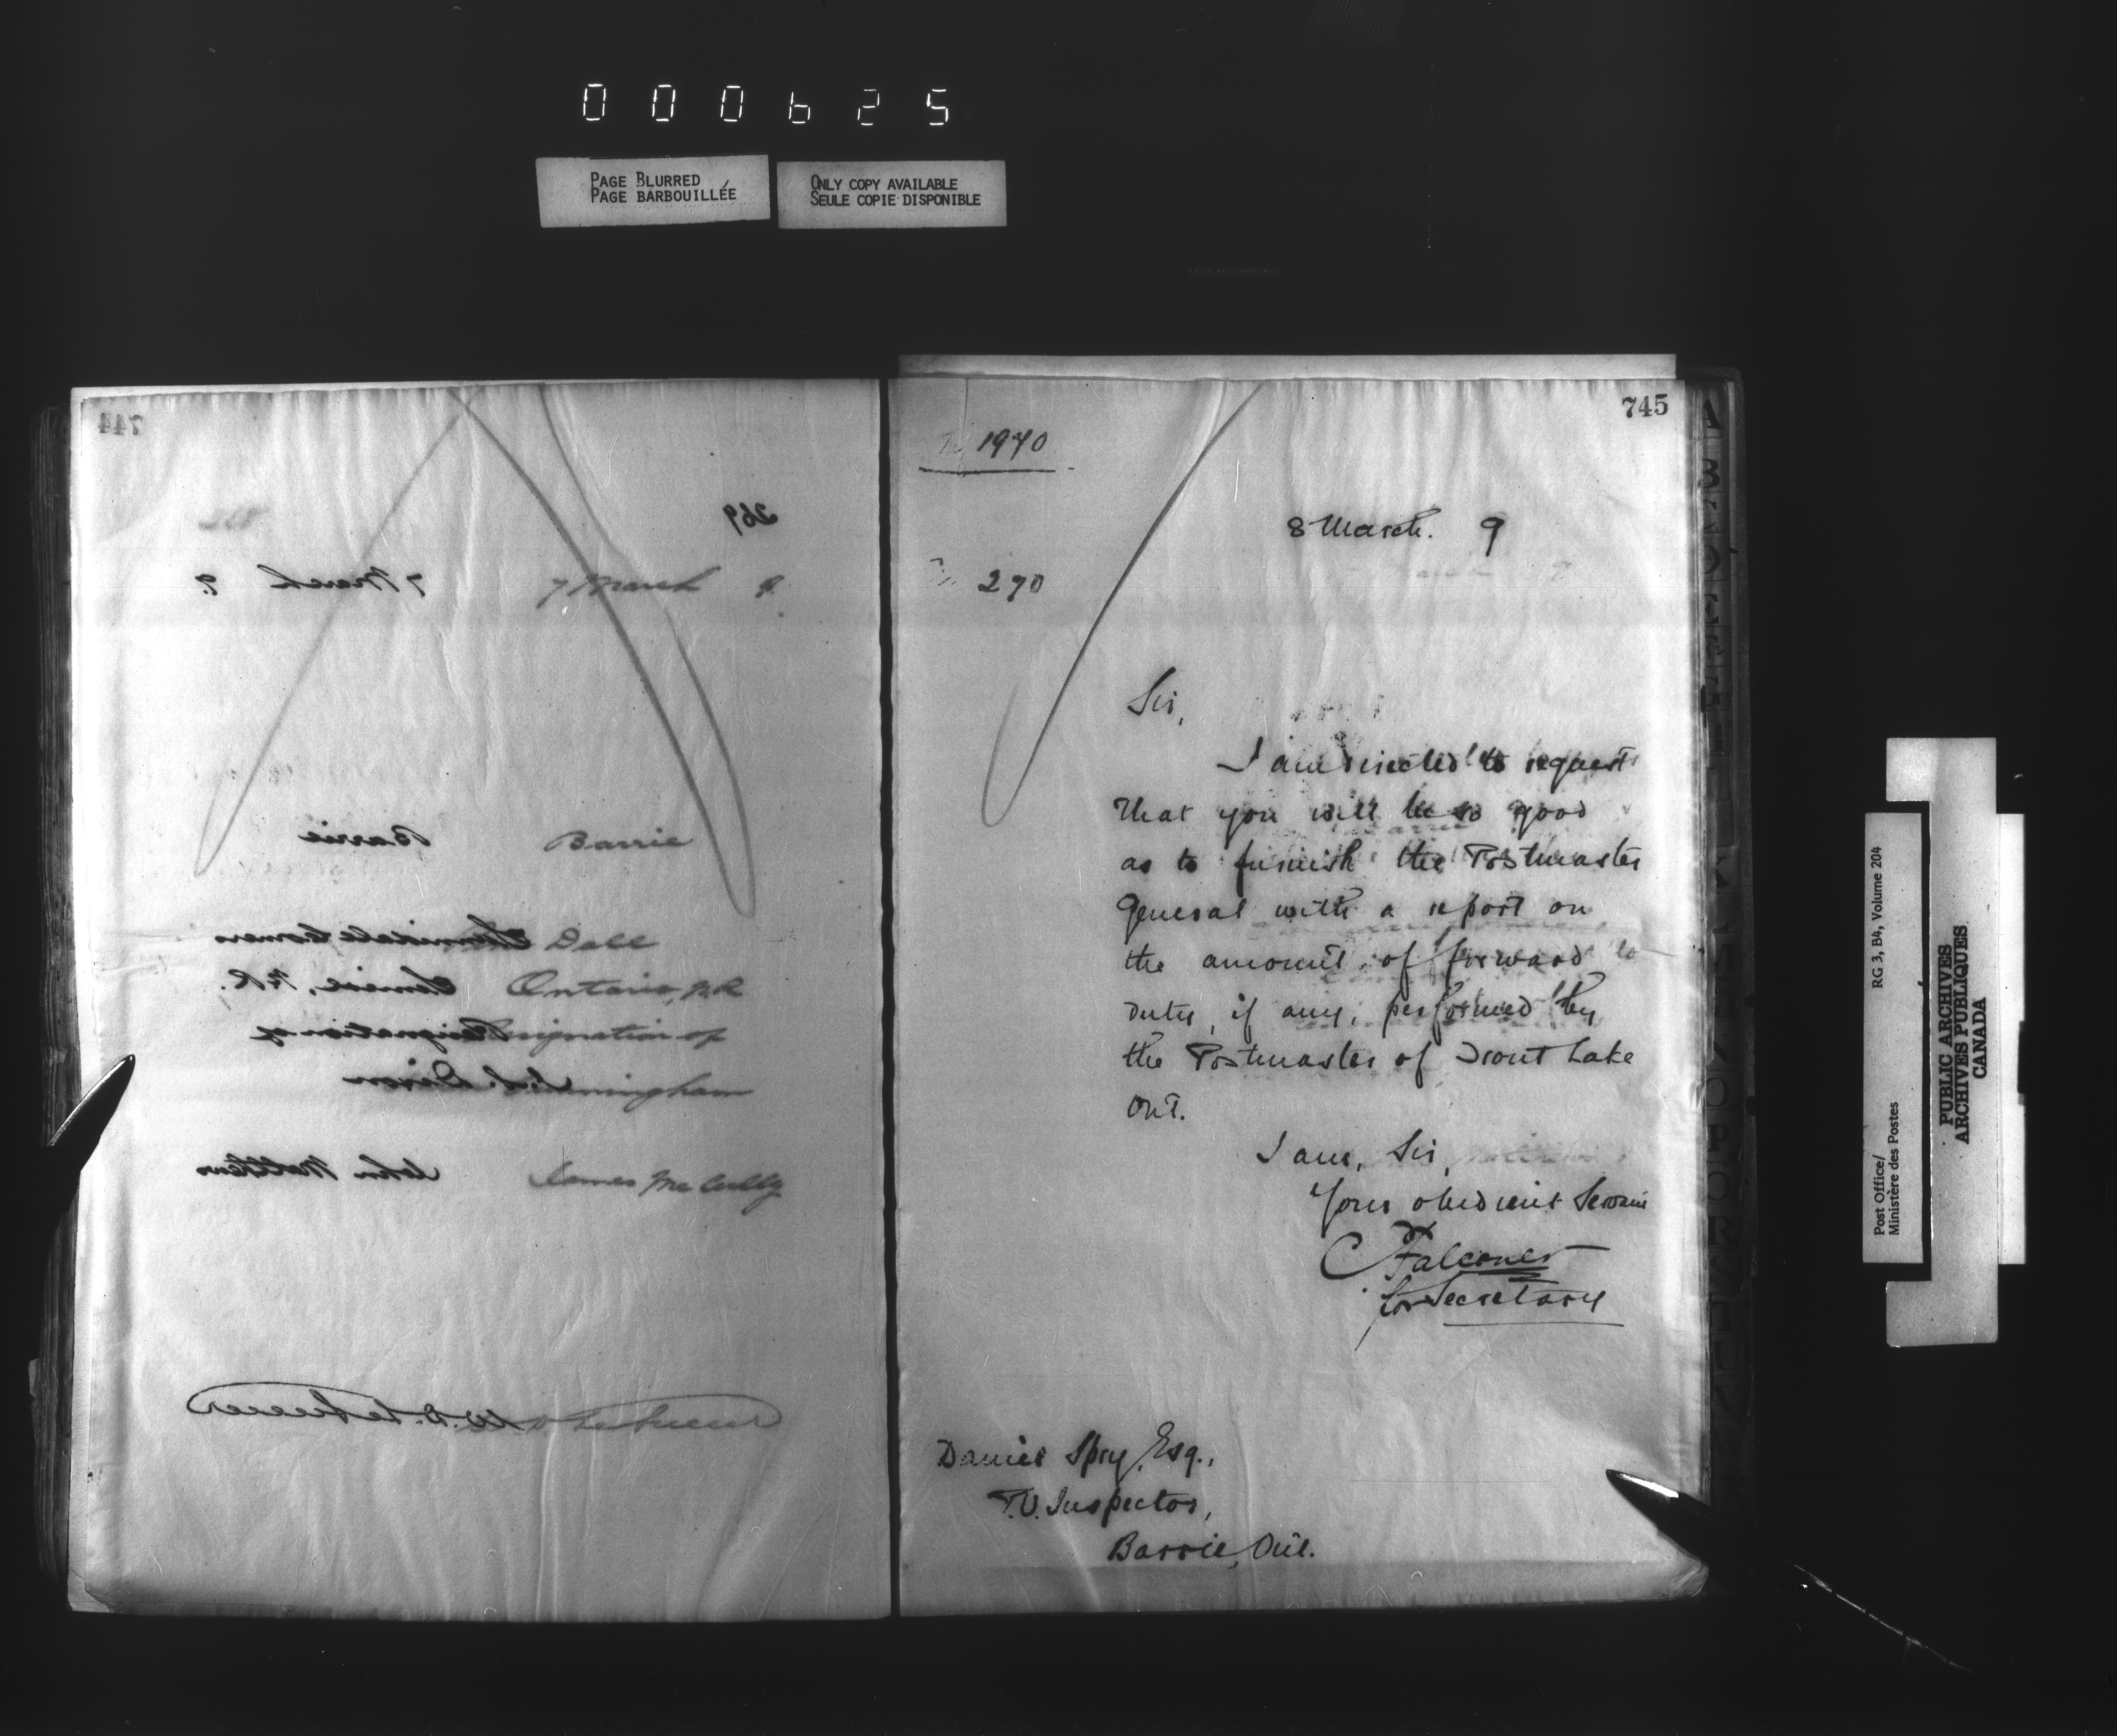 000625
PAGE BLURRED
PAGE BARBOUILLÉE
ONLY COPY AVAILABLE
SEULE COPIE DISPONIBLE
744
269
7 March 9.
7 March 9.
Barrie
Barrie
Corners
Dell
Simcoe, N.R.
Ontario, N.R.
Resignation of
resignation of
Dixon
Cunningham
John Matthews
James McCully
W.D. LeSueur
D LeSueur
745
1970
8 March. 9
270
Sir,
I am directed to request
that you will be so good
as to furnish the Postmaster
General with a report on
the amount of forward
duty, if any, performed by
the Postmaster of Trout Lake
Ont.
I am, Sir,
Your obedient Servant
C Falconer
for Secretary
Daniel Spry, Esq.,
P.O. Inspector,
Barrie, Ont.
Post Office/
Ministère des Postes
RG 3, B4, Volume 204
PUBLIC ARCHIVES
ARCHIVES PUBLIQUES
CANADA